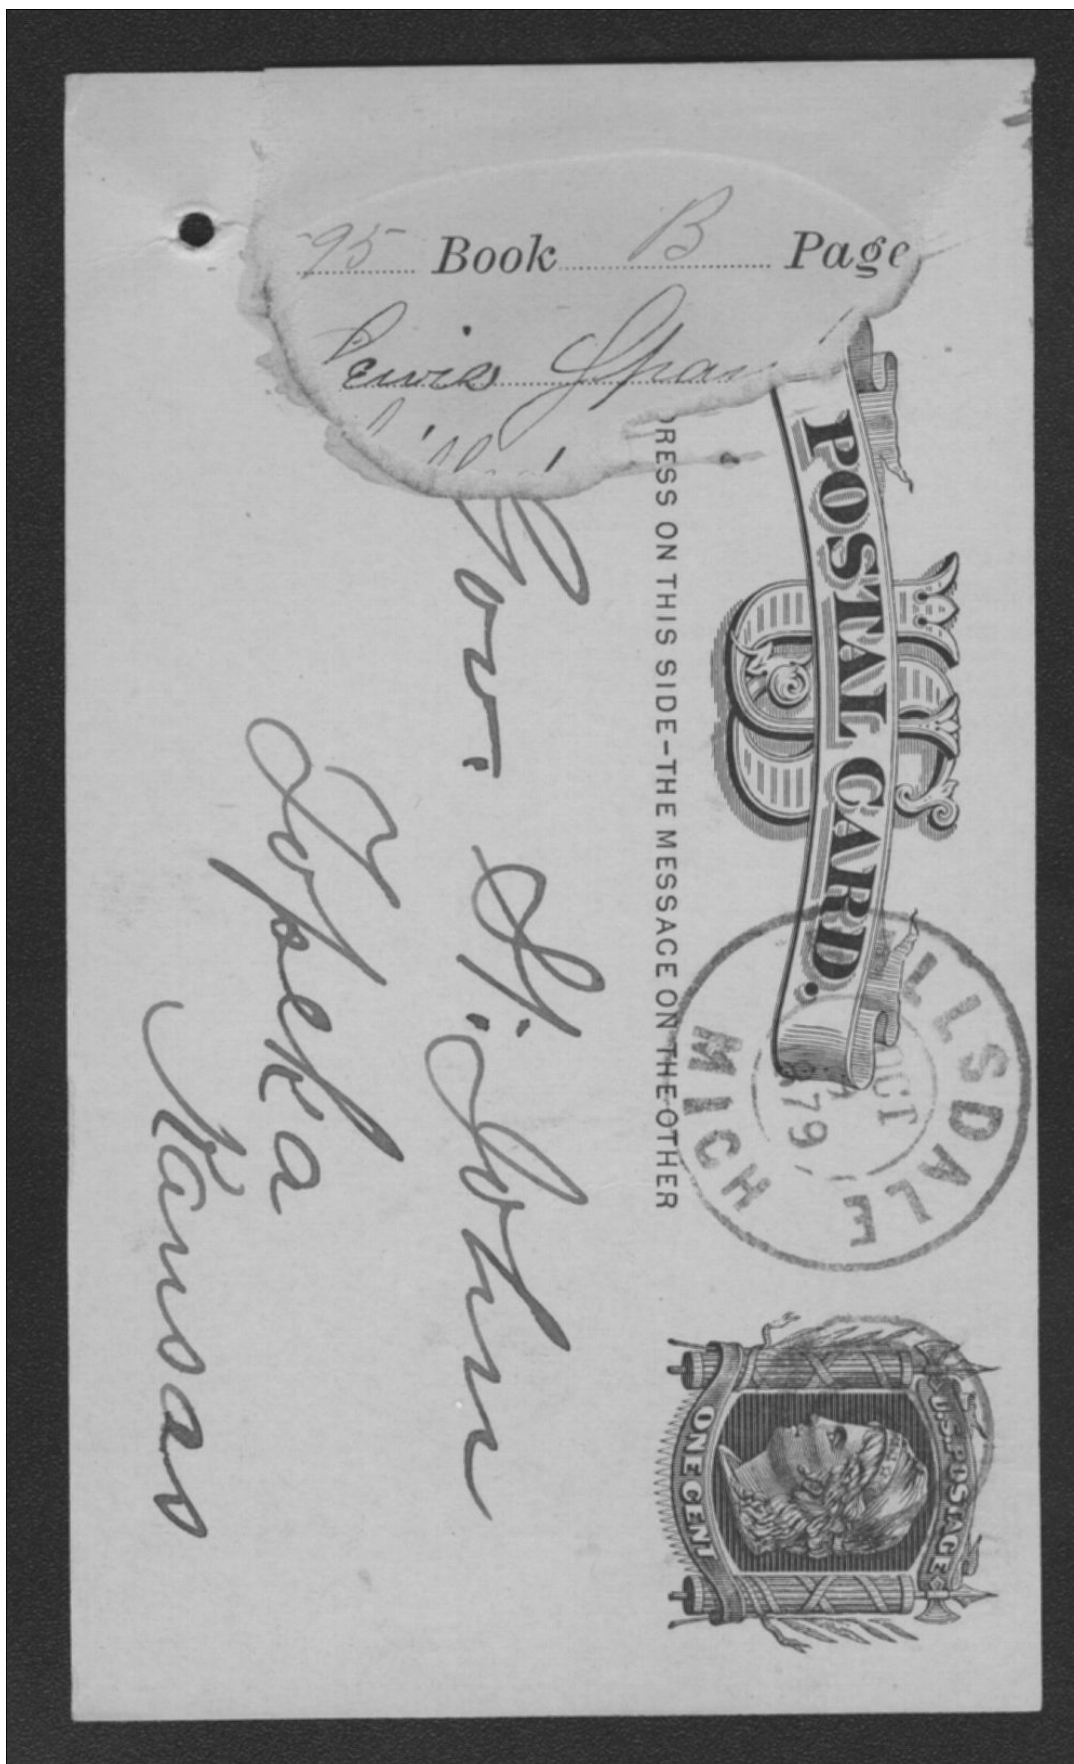 95 Book B Page
Lewis
POSTAL CARD.
RESS ON THIS SIDE-THE MESSAGE ON THE OTHER
LLSDALE
MICH
OCT
879
U.S. POSTAGE
ONE CENT
Gov. St. John
Topeka
Kansas